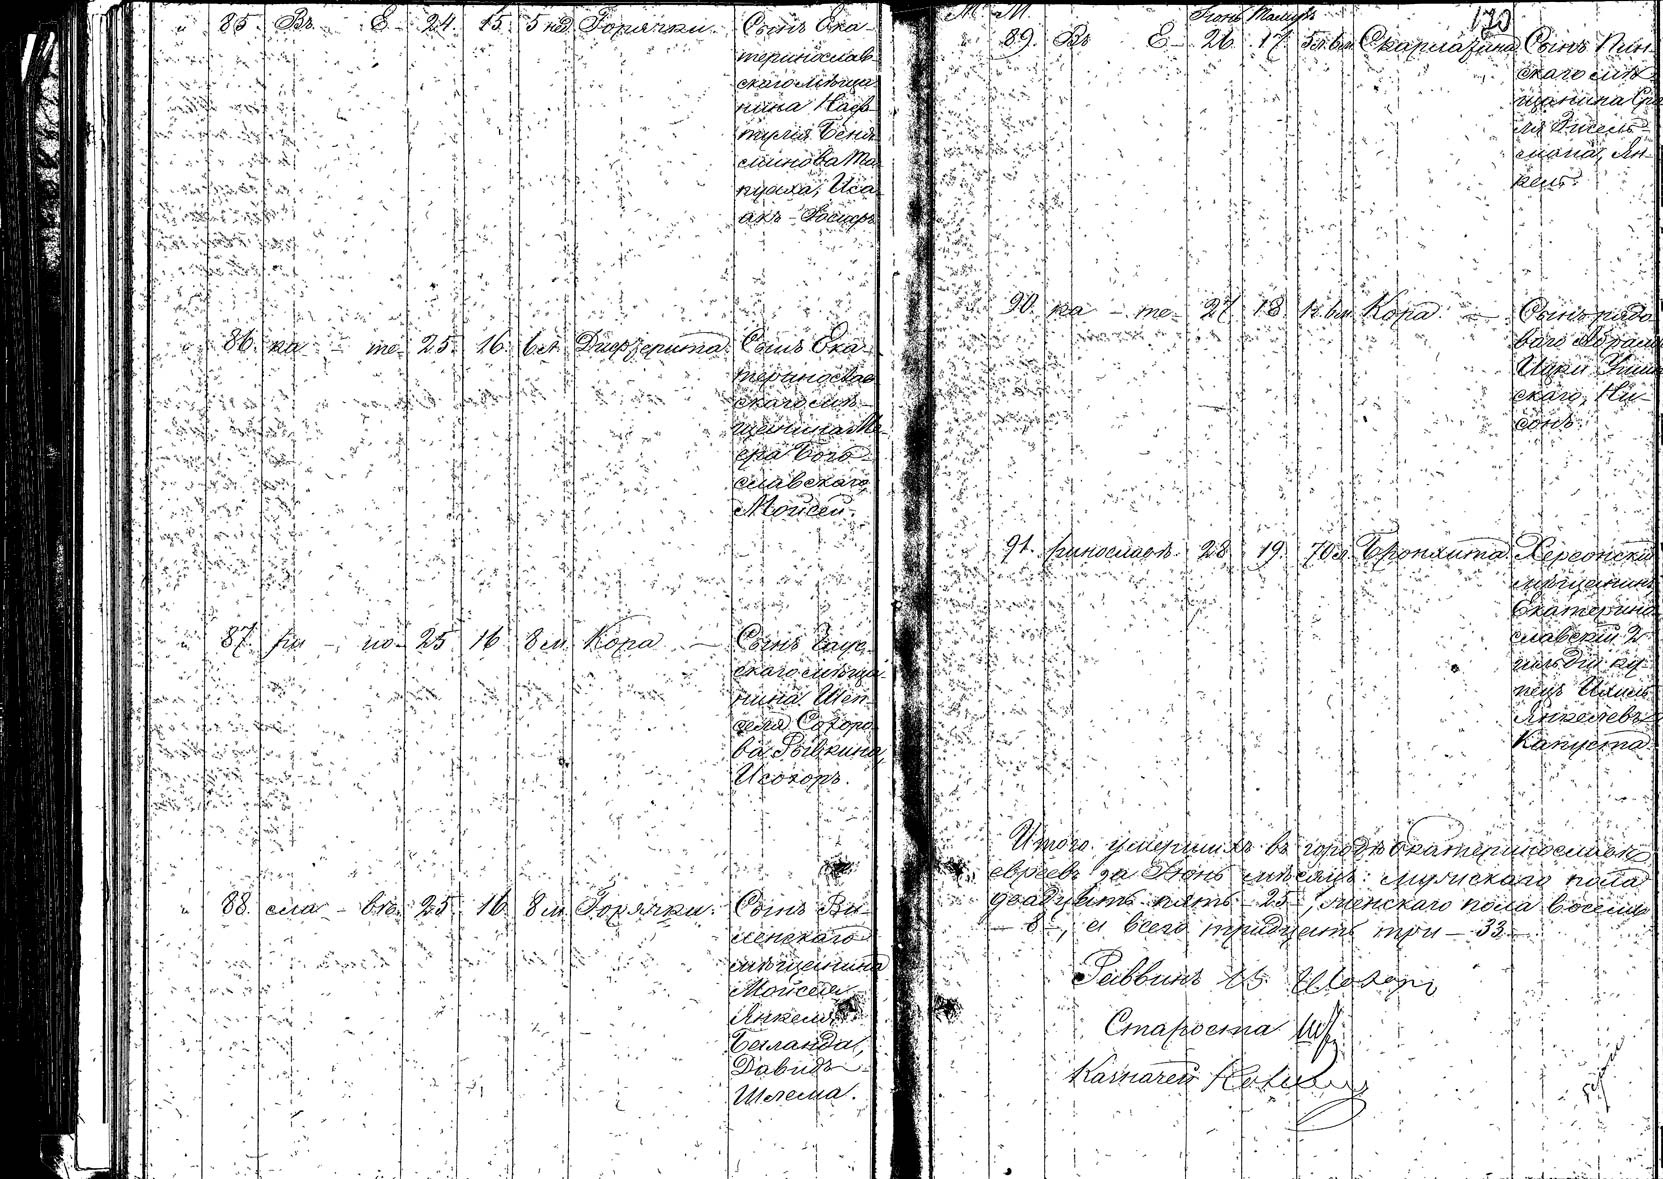 85. Въ Е- 24. 15. 5 нд. Горячки. Сынъ Ека-
теринослав-
скаго мѣща-
нина Наф-
тулія Беня-
минова Та-
пуаха, Иса-
акъ-Іосифъ
86. ка - те- 25. 16. 6 л. Дифтерита. Сынъ Ека-
теринослав-
скаго мѣ-
щанина Ме-
ера Бого-
славскаго,
Мойсей.
87. ри - но- 25 16 8 м. Кора - Сынъ Чаус-
скаго мѣща-
нина Шеп-
селя Сохоро-
ва Рывкина,
Исохоръ.
88. сла - вѣ. 25. 16. 8 м. Горячки. Сынъ Ви-
ленскаго
мѣщанина
Мойсея
Янкеля
Баланда,
Давидъ
Шлема.
М. М. Іюнь Тамузъ 120
89. Въ Е- 26 17 Скарлатина Сынъ Пин-
скаго мѣ-
щанина Сро-
ля Эйсель-
мана, Ян-
кель.
90. ка - те- 27. 18 Кора - Сынъ рядо-
ваго Абрама
Ицки
скаго, Ни-
сонъ.
91. ринославѣ. 28. 19. 70 л. Бронхита. Херсонскій
мѣщанинъ,
Екатерино-
славскій 2
гильдіи ку-
пецъ
Янкелевъ
Капуста.
Итого умершихъ въ городѣ Екатеринославѣ
евреевъ за Іюнь мѣсяцъ: мужскаго пола
двадцать пять - 25 -, женскаго пола восемь
- 8 -, а всего тридцать три - 33 -
Раввинъ
Староста
Казначей